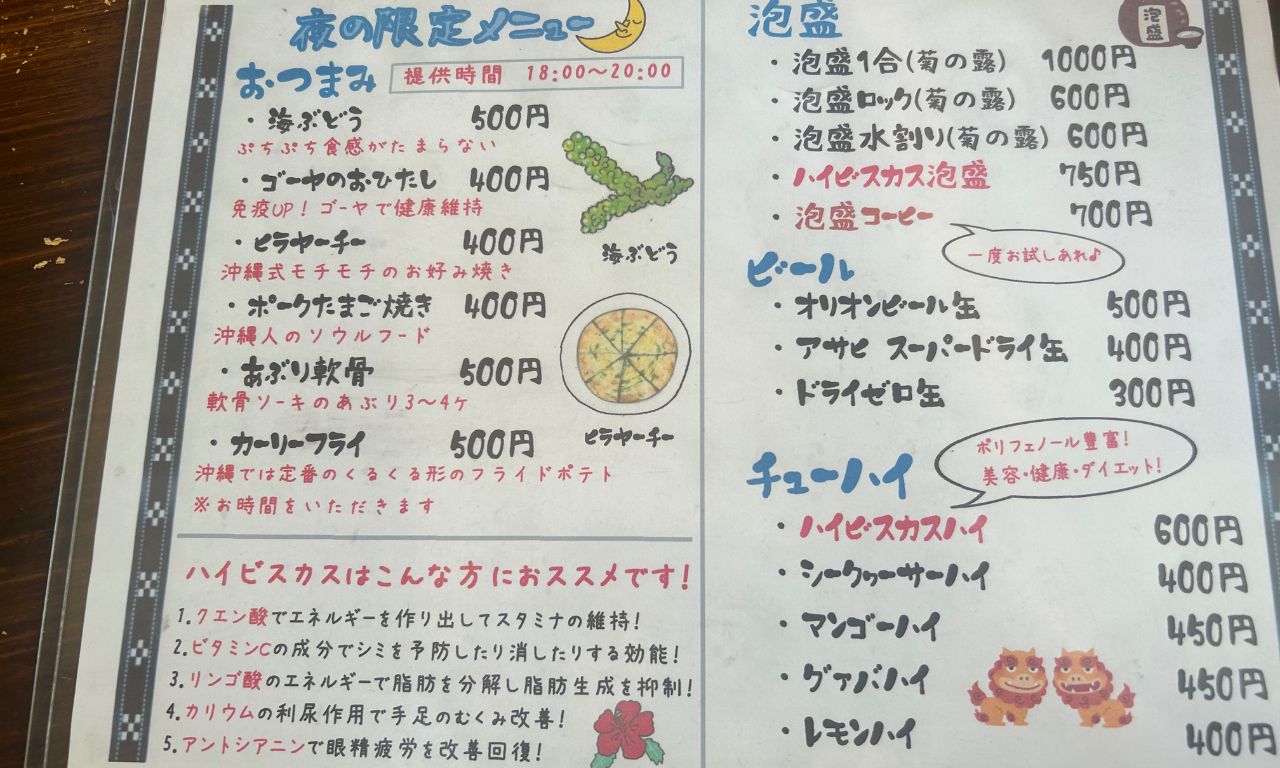 夜の限定メニュー
おつまみ
提供時間 18:00〜20:00
・海ぶどう 500円
ぷちぷち食感がたまらない
・ゴーヤのおひたし 400円
免疫UP！ゴーヤで健康維持
・ヒラヤーチー 400円
沖縄式モチモチのお好み焼き
・ポークたまご焼き 400円
沖縄人のソウルフード
・あぶり軟骨 500円
軟骨ソーキのあぶり3〜4ヶ
・カーリーフライ 500円
沖縄では定番のくるくる形のフライドポテト
※お時間をいただきます
海ぶどう
ヒラヤーチー
ハイビスカスはこんな方におススメです！
1.クエン酸でエネルギーを作り出してスタミナの維持！
2.ビタミンCの成分でシミを予防したり消したりする効能！
3.リンゴ酸のエネルギーで脂肪を分解し脂肪生成を抑制！
4.カリウムの利尿作用で手足のむくみ改善！
5.アントシアニンで眼精疲労を改善回復！
泡盛
泡盛
・泡盛1合(菊の露) 1000円
・泡盛ロック(菊の露) 600円
・泡盛水割り(菊の露) 600円
・ハイビスカス泡盛 750円
・泡盛コーヒー 700円
一度お試しあれ♪
ビール
・オリオンビール缶 500円
・アサヒ スーパードライ缶 400円
・ドライゼロ缶 300円
チューハイ
ポリフェノール豊富！
美容・健康・ダイエット！
・ハイビスカスハイ 600円
・シークヮーサーハイ 400円
・マンゴーハイ 450円
・グァバハイ 450円
・レモンハイ 400円